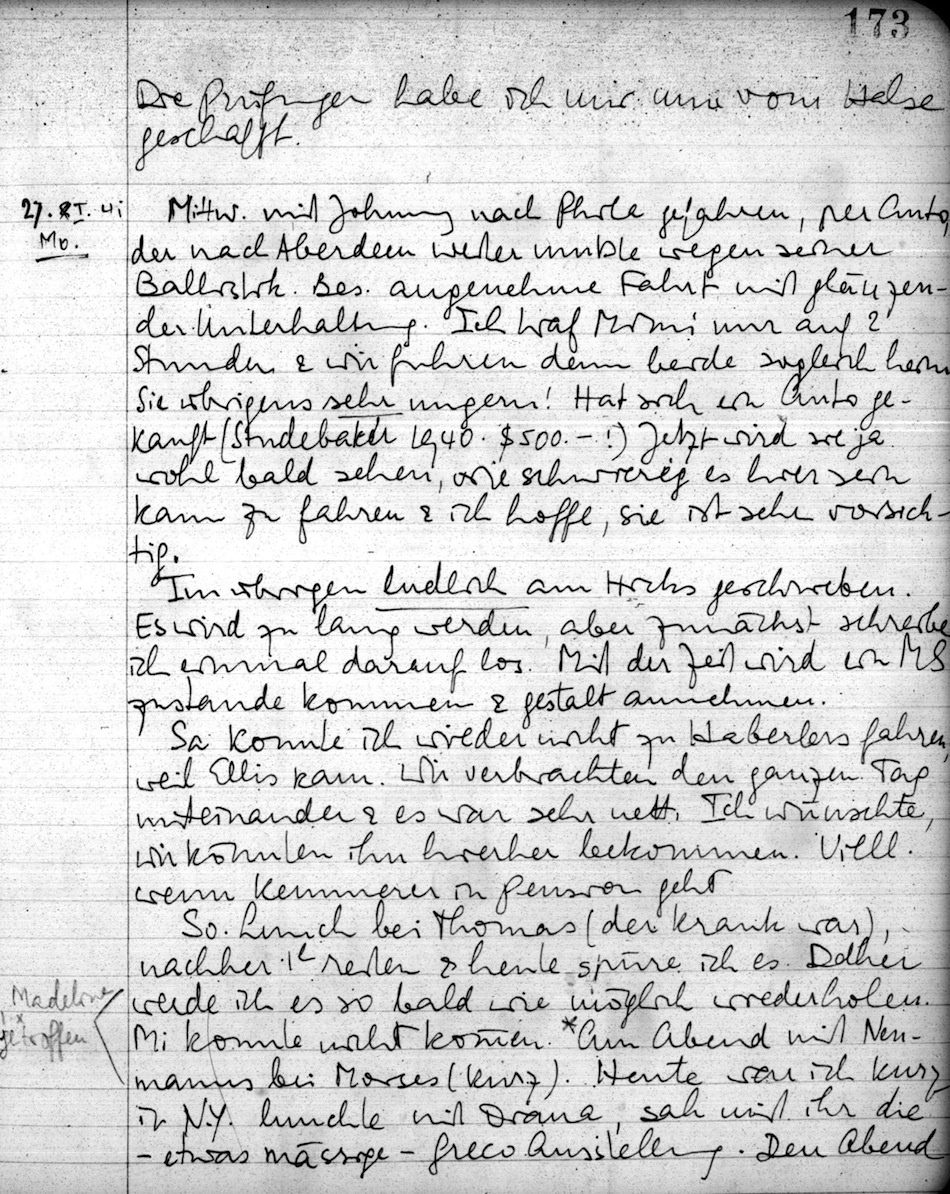 173
Die Prüfungen habe ich mir nun vom Halse
geschafft.
27. I. 41
Mo.
Mittw. mit Johnny nach Phila gefahren, per Auto,
der nach Aberdeen weiter musste wegen seiner
Ballistik. Bes. angenehme Fahrt mit glänzen-
der Unterhaltung. Ich traf Mimi nur auf 2
Stunden & wir fuhren dann beide sogleich heim
Sie übrigens sehr ungern! Hat sich ein Auto ge-
kauft (Studebaker 1940. $500.- !) Jetzt wird sie ja
wohl bald sehen, wie schwierig es hier sein
kann zu fahren & ich hoffe, sie ist sehr vorsich-
tig.
Im übrigen endlich am Hicks geschrieben.
Es wird zu lang werden, aber zunächst schreibe
ich einmal darauf los. Mit der Zeit wird ein MS
zustande kommen & gestalt annehmen.
Sa konnte ich wieder nicht zu Haberlers fahren,
weil Ellis kam. Wir verbrachten den ganzen Tag
miteinander & es war sehr nett. Ich wünschte,
wir könnten ihn hierher bekommen. Vill.
wenn Kemmerer in Pension geht
So. Lunch bei Thomas (der krank war),
nachher reiten & heute spüre ich es. Daher
werde ich es so bald wie möglich wiederholen.
Mi konnte nicht kommen. *Am Abend mit Neu-
Madeline
getroffen
manns bei Morses (kurz). Heute war ich kurz
in N.Y. lunchte mit Diana, sah mit ihr die
- etwas mässige - Greco Ausstellung. Den Abend